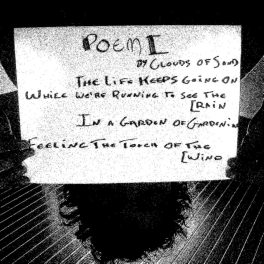 POEM I
BY CLOUDS OF SAND
THE LIFE KEEPS GOING ON
WHILE WE'RE RUNNING TO SEE THE
[RAIN
IN A GARDEN OF GARDENIA
FEELING THE TOUCH OF THE
[WIND